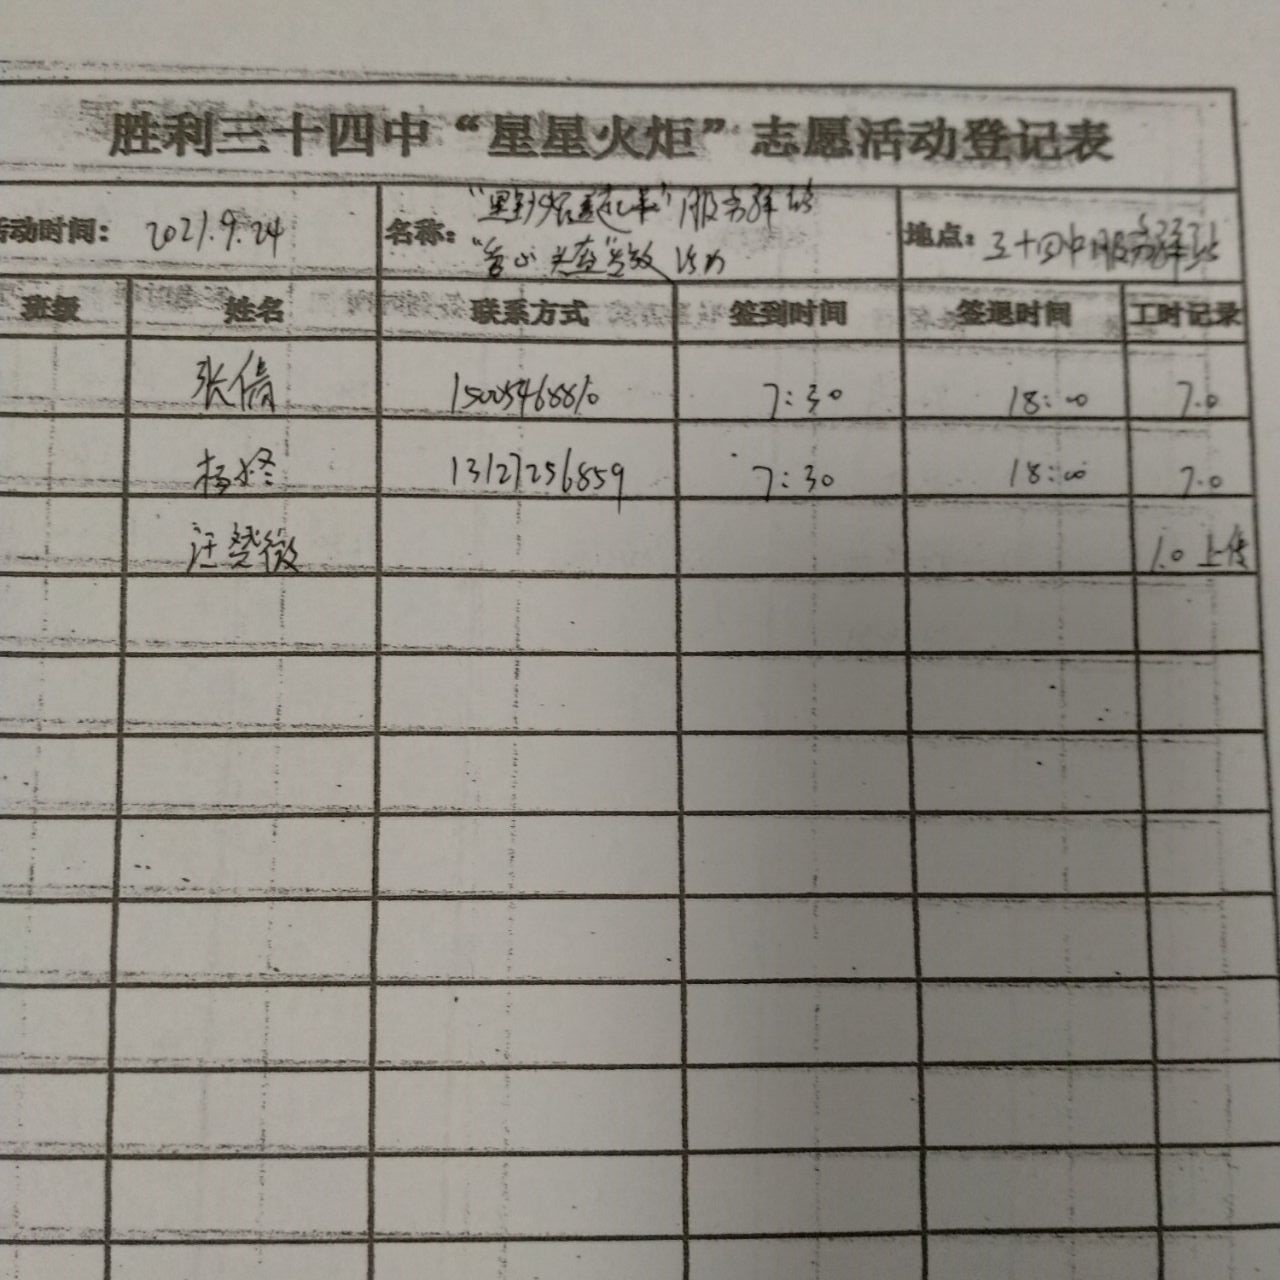 胜利三十四中“星星火炬”志愿活动登记表
活动时间： 2021.9.24 名称： 服务驿站 地点： 三十四中服务驿站
班级 姓名 联系方式 签到时间 签退时间 工时记录
张倩 15005468810 7:30 18:00 7.0
杨終 13127256859 7:30 18:00 7.0
汪楚薇 1.0 上传